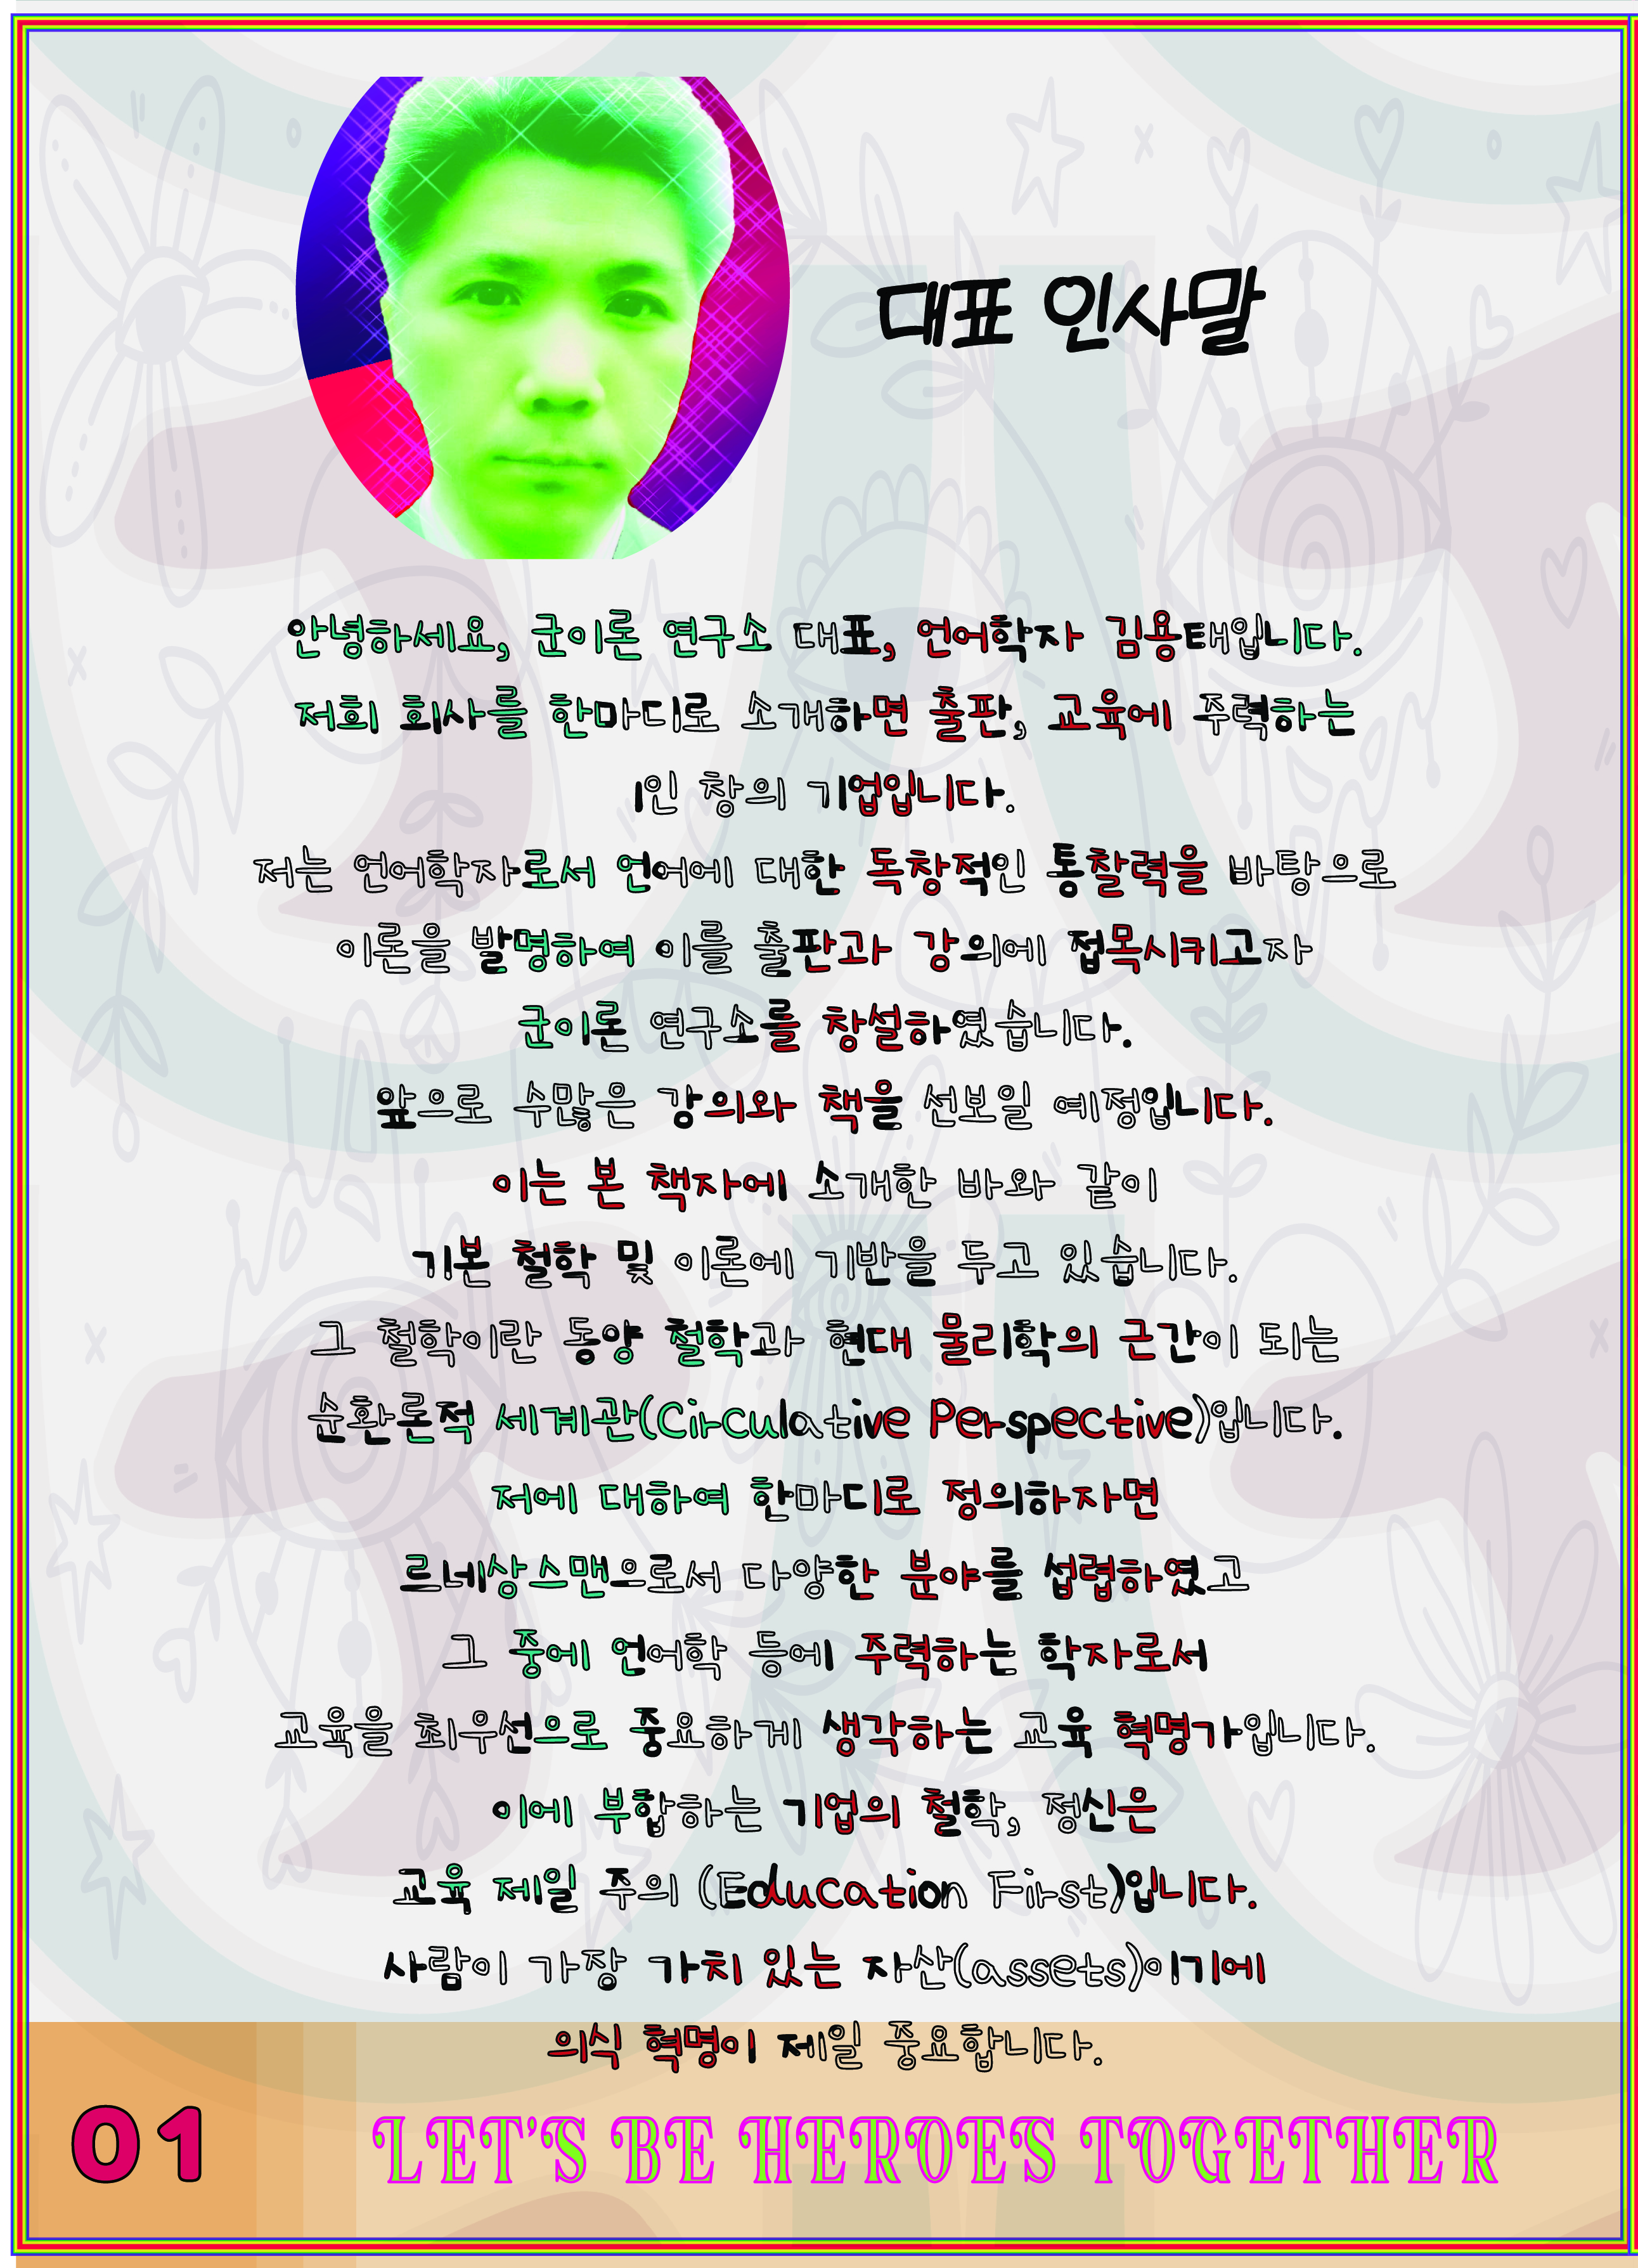 대표 인사말
안녕하세요, 균이론 연구소 대표, 언어학자 김용태입니다.
저희 회사를 한마디로 소개하면 출판, 교육에 주력하는
1인 창의 기업입니다.
저는 언어학자로서 언어에 대한 독창적인 통찰력을 바탕으로
이론을 발명하여 이를 출판과 강의에 접목시키고자
균이론 연구소를 창설하였습니다.
앞으로 수많은 강의와 책을 선보일 예정입니다.
이는 본 책자에 소개한 바와 같이
기본 철학 및 이론에 기반을 두고 있습니다.
그 철학이란 동양 철학과 현대 물리학의 근간이 되는
순환론적 세계관(Circulative Perspective)입니다.
저에 대하여 한마디로 정의하자면
르네상스맨으로서 다양한 분야를 섭렵하였고
그 중에 언어학 등에 주력하는 학자로서
교육을 최우선으로 중요하게 생각하는 교육 혁명가입니다.
이에 부합하는 기업의 철학, 정신은
교육 제일 주의 (Education First)입니다.
사람이 가장 가치 있는 자산(assets)이기에
의식 혁명이 제일 중요합니다.
01 LET'S BE HEROES TOGETHER